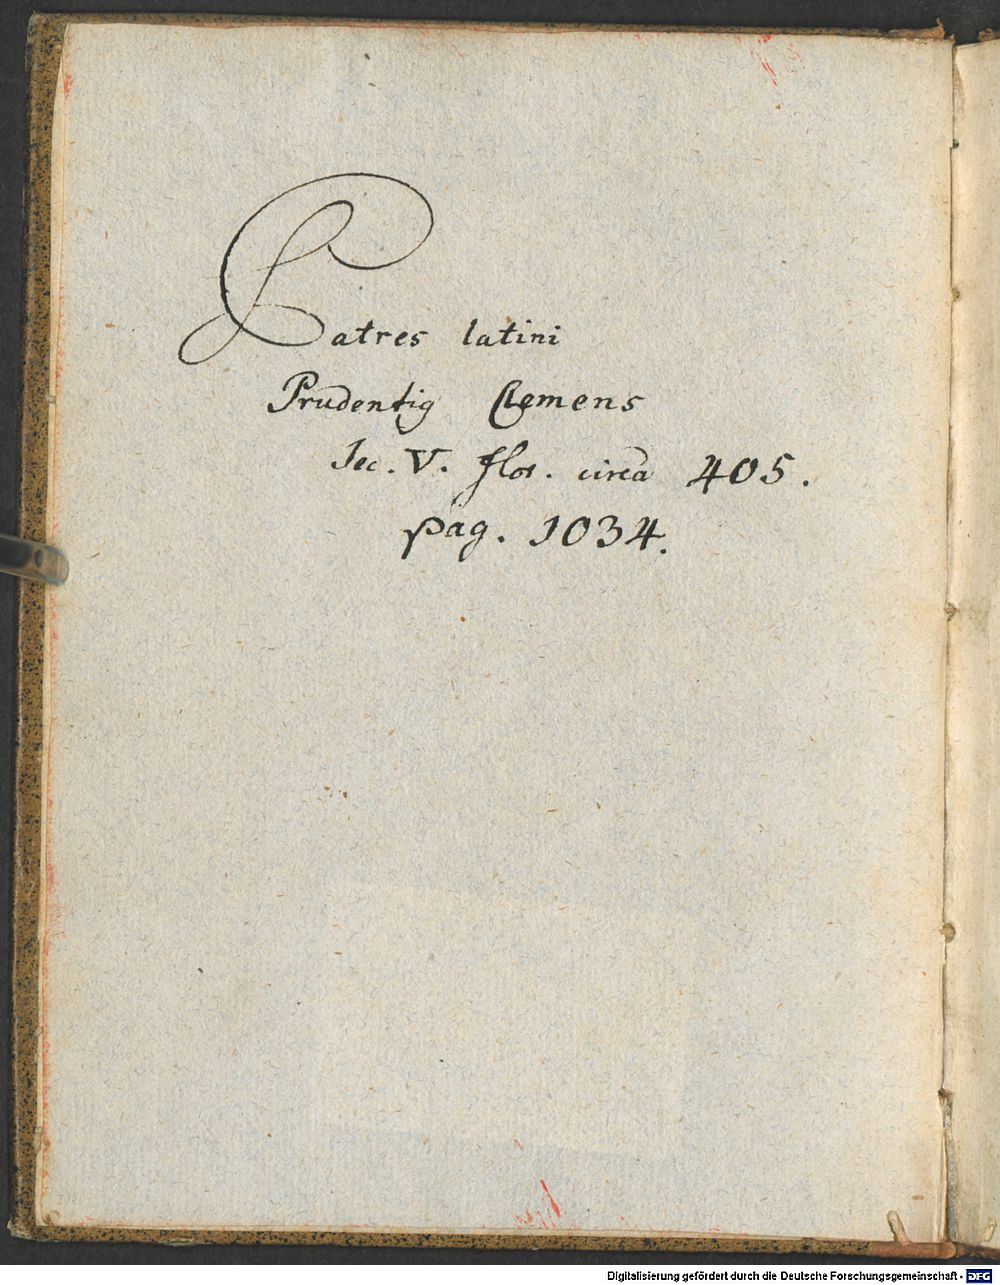 Patres latini
Prudentig Clemens
Sec. V. flor. circa 405.
pag. 1034.
Digitalisierung gefördert durch die Deutsche Forschungsgemeinschaft - DFG